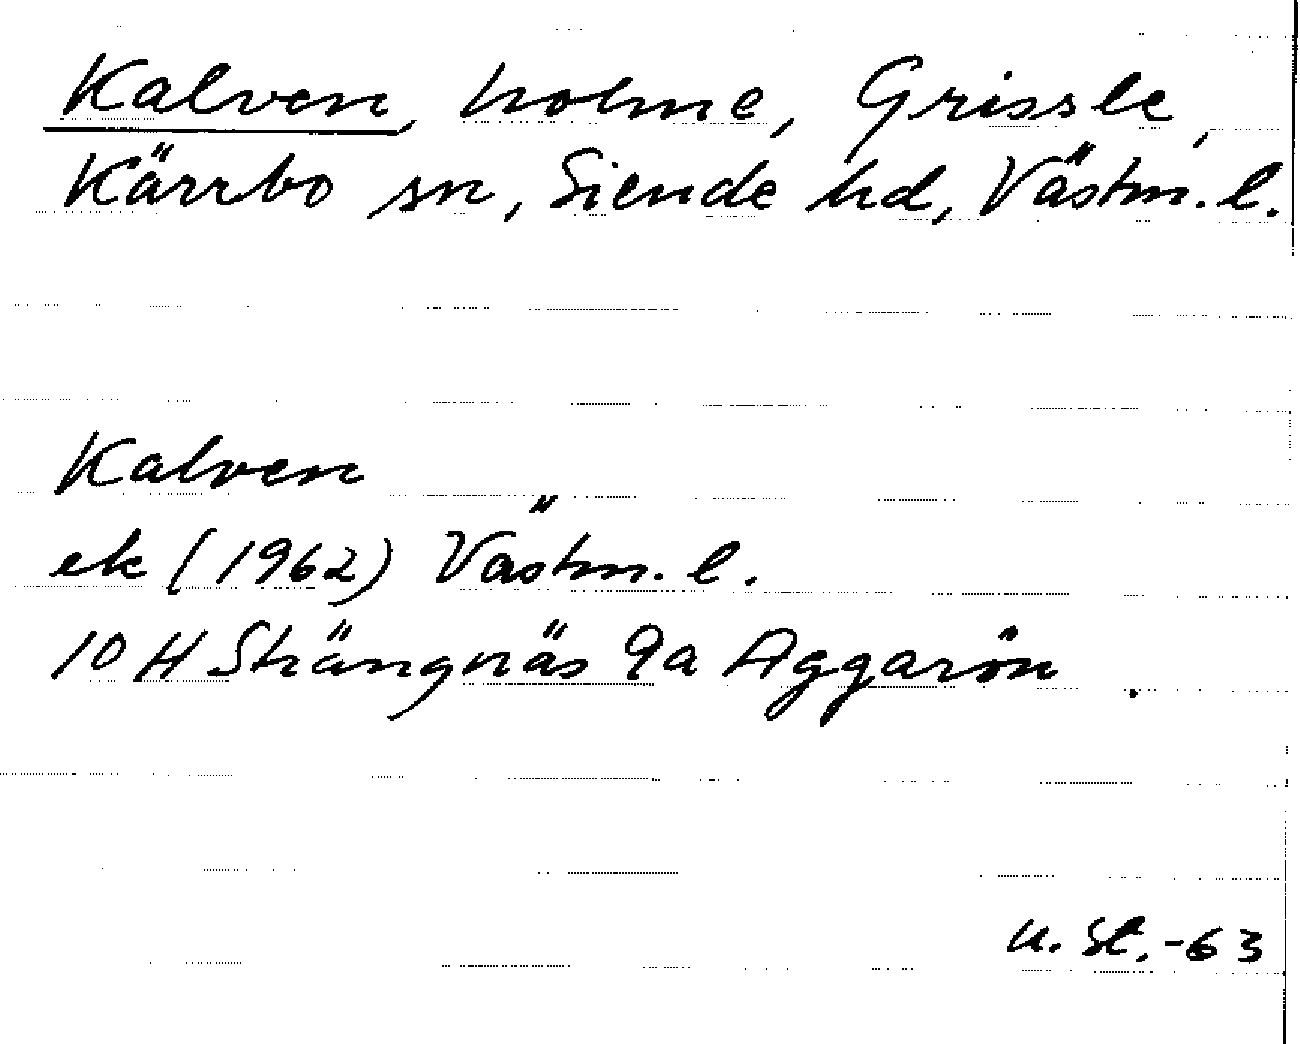 Kalven, holme, Grissle,
Kärrbo sn, Siende hd, Västm. l.
Kalven
ek (1962) Västm. l.
10 H Strängnäs 9a Aggarön.
U. St. -63